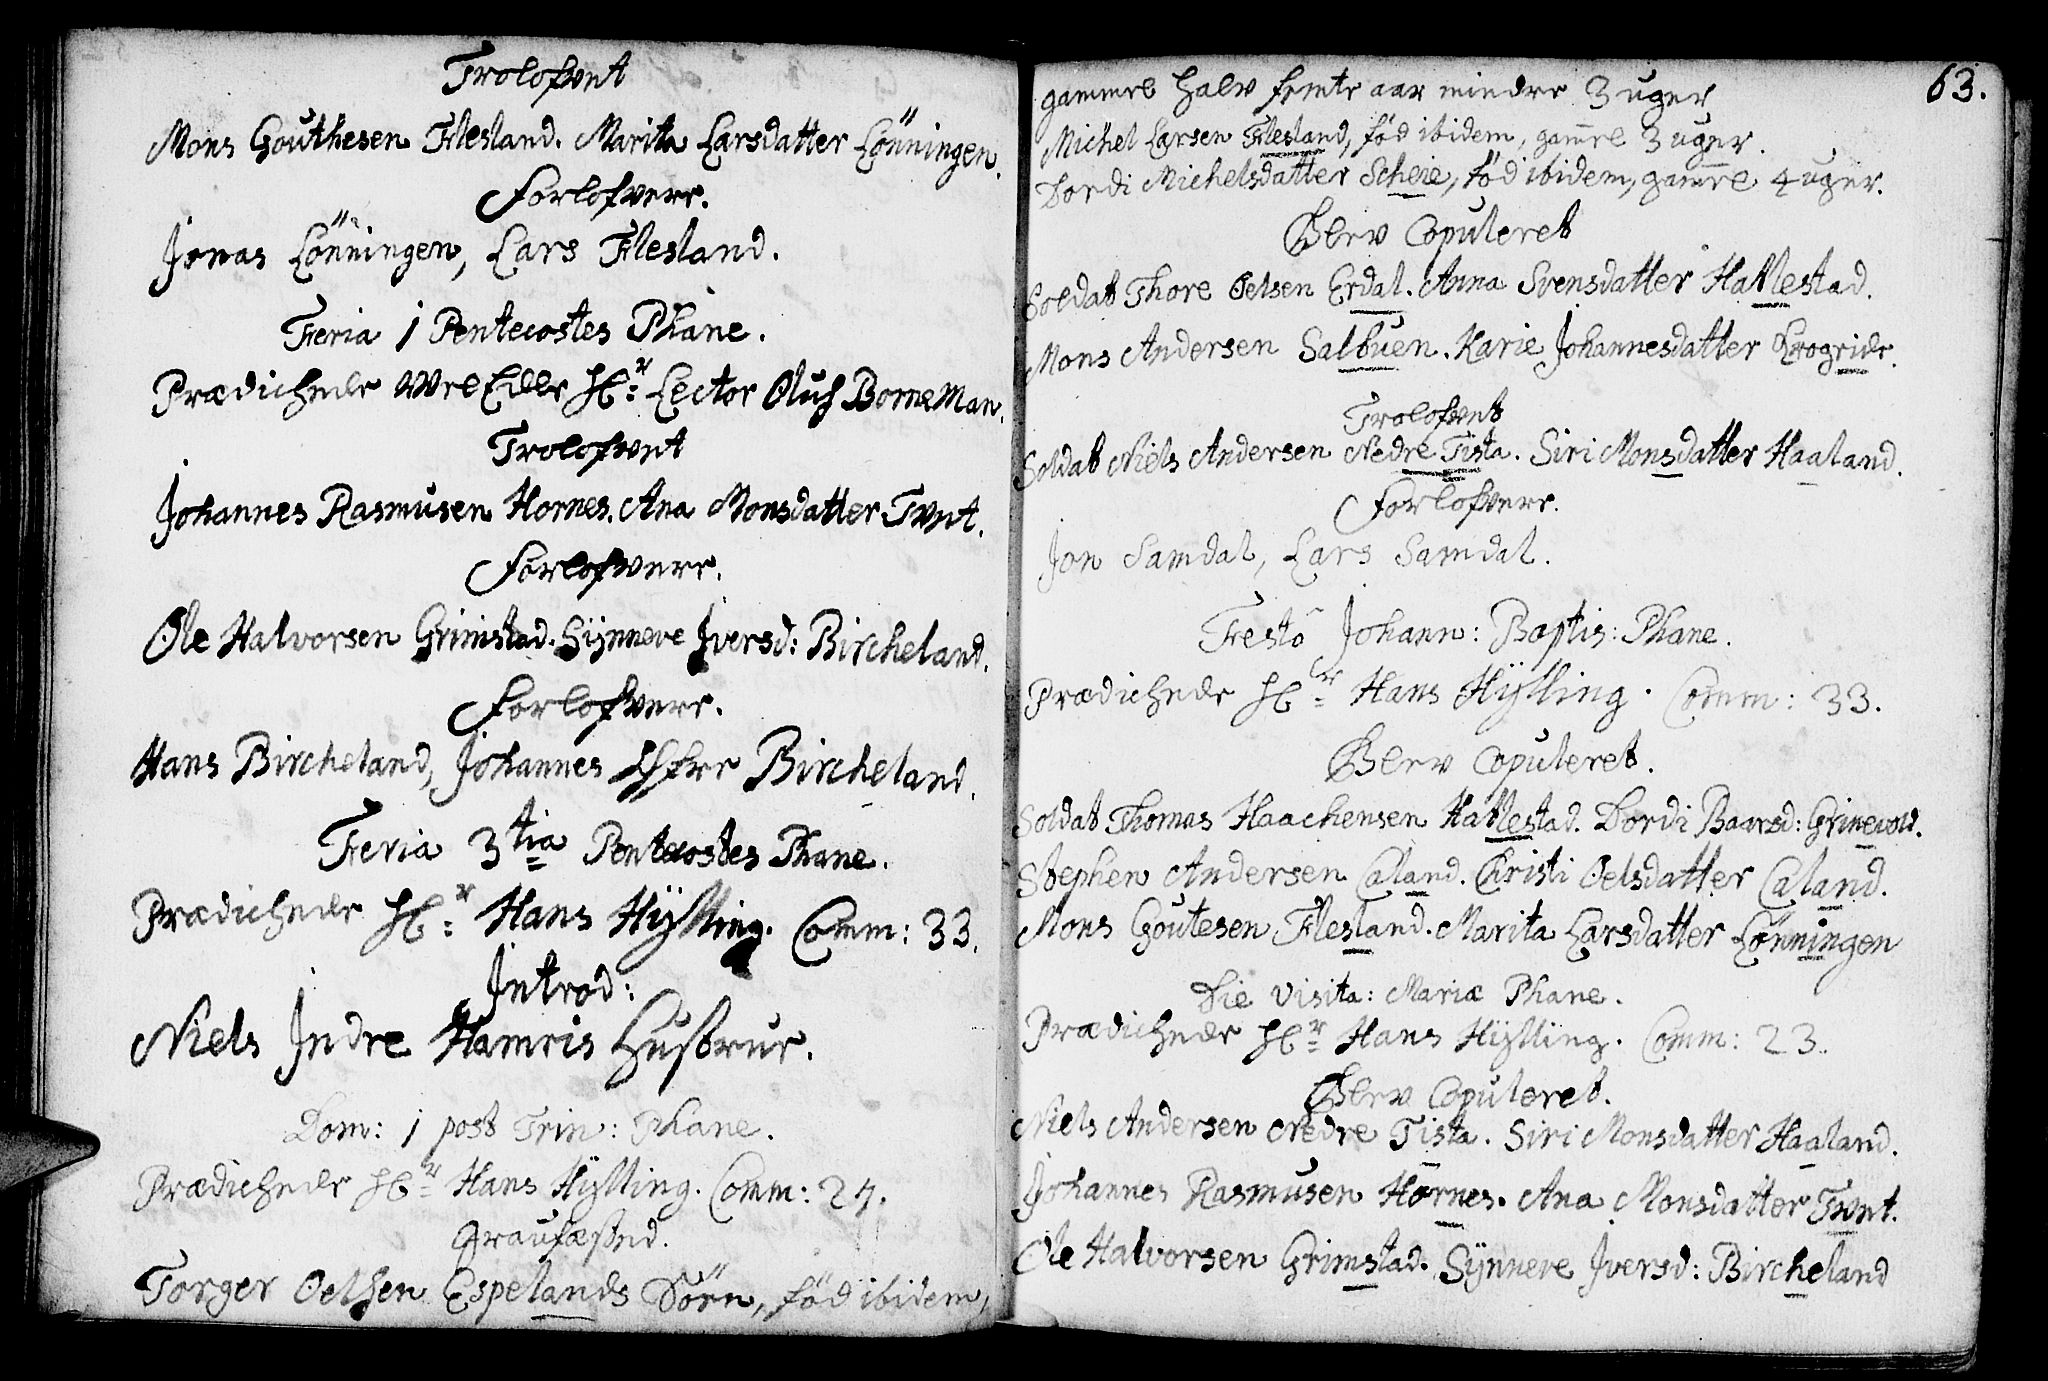 Trolofvet
Mons Gouthesen Flesland. Marita Larsdatter Lönningen.
Forlofvere.
Jonas Lönningen, Lars Flesland.
Feria 1 Pentecostes Phane.
Prædichede Hr: Lector Oluf Borneman.
Trolofvet
Johannes Rasmusen Hornes. Ana Monsdatter Tvet.
Forlofvere.
Ole Halvorsen Grimstad. Sÿnneve Iversd: Bircheland.
Forlofvere.
Hans Bircheland, Johannes Bircheland.
Feria 3tia Pentecostes Phane.
Prædichede Hr: Hans Hÿlling. Comm: 33.
Introd:
Niels Indre Hamris Hustrue.
Dom: 1 post Trin: Phane.
Prædichede Hr: Hans Hÿlling. Comm: 27.
Graufæsted.
Torger Oelsen Espelands Sörn, föd ibidem,
63.
gammel halv femte aar mindre 3 uger
Michel Larsen Flesland, föd ibidem, gam̅el 3 uger.
Dordi Michelsdatter Scheie, föd ibidem, gam̅el 4 uger.
Blev Copuleret
Soldat Thore Oelsen Erdal. Anna Svensdatter Hatlestad.
Mons Andersen Salbuen. Karie Johannesdatter Krogeide.
Trolofvet
Soldat Niels Andersen Nedre Tista. Siri Monsdatter Haaland.
Forlofvere.
Jon Samdal, Lars Samdal.
Festo Johann: Baptis: Phane.
Prædichede Hr: Hans Hÿlling. Comm: 33.
Blev Copuleret.
Soldat Thomas Haachensen Hatlestad. Dordi Baarsd: Grinevold.
Stephen Andersen Caland. Christi Oelsdatter Caland.
Mons Goutesen Flesland. Marita Larsdatter Lönningen
Die Visita: Mariæ Phane.
Prædichede Hr: Hans Hÿlling. Comm: 23.
Blev Copuleret.
Niels Andersen Nedre Tista. Siri Monsdatter Haaland.
Johannes Rasmusen Hornes. Ana Monsdatter Tvet.
Ole Halvorsen Grimstad. Sÿnneve Iversd: Bircheland